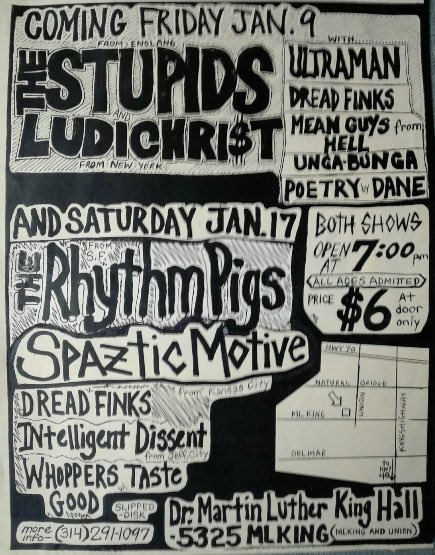 COMING FRIDAY JAN. 9
FROM ENGLAND
THE STUPIDS
AND
LUDICHRI$T
FROM NEW YORK
WITH
ULTRAMAN
DREAD FINKS
MEAN GUYS from
HELL
UNGA-BUNGA
POETRY by DANE
AND SATURDAY JAN. 17
FROM
S.F.
THE Rhythm Pigs
SPAZTIC MOTIVE
from Kansas City
DREAD FINKS
INtelligent Dissent
from Jeff. City
WHOPPERS TASTE
GOOD
SLIPPED
-DISK
more
info- (314) 291-1097
BOTH SHOWS
OPEN
AT 7:00 pm
ALL AGES ADMITTED
PRICE $6 At
door
only
HWY 70
NATURAL BRIDGE
ML KING
UNION
KINGSHIGHWAY
DELMAR
TO
HWY
40
Dr. Martin Luther King Hall
-5325 ML KING (ML KING AND UNION)